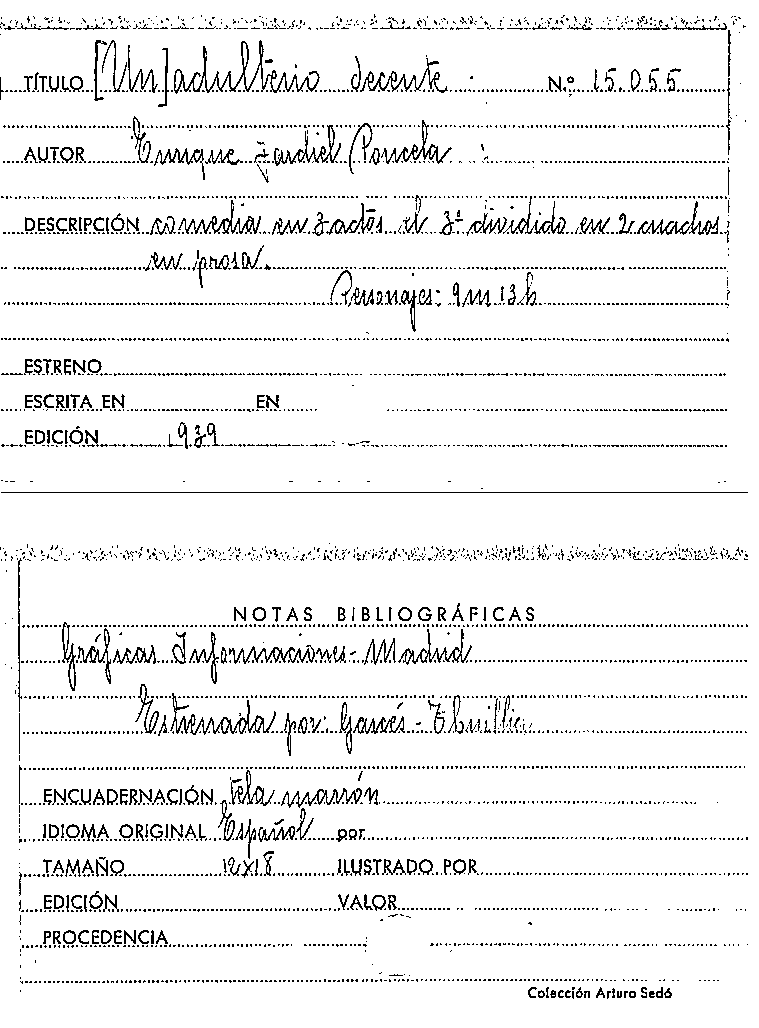 TÍTULO [Un] adulterio decente Nº 15.055
AUTOR Enrique Jardiel Poncela
DESCRIPCIÓN comedia en 3 actos el 3º dividido en 2 cuadros
en prosa.
Personajes: 9 m 13 h
ESTRENO
ESCRITA EN EN
EDICIÓN 1939
NOTAS BIBLIOGRÁFICAS
Gráficas Informaciones - Madrid
Estrenada por: Garcés -
ENCUADERNACIÓN tela marrón
IDIOMA ORIGINAL Español por
TAMAÑO 12x18 ILUSTRADO POR
EDICIÓN VALOR
PROCEDENCIA
Colección Arturo Sedó